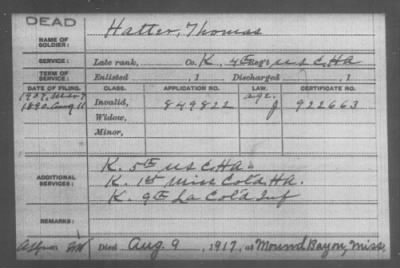 DEAD
NAME OF SOLDIER: Hatter, Thomas
SERVICE: Late rank, Co. K, 4th Reg't U S C, HA
TERM OF SERVICE: Enlisted , 1 Discharged , 1
DATE OF FILING. CLASS. APPLICATION NO. LAW. CERTIFICATE NO.
1907, Mar 7 age.
1890, Aug 11 Invalid, 849822 J 922663
Widow,
Minor,
K. 5th U S C, HA.
ADDITIONAL SERVICES: K. 1st Miss Col'd HA.
K. 9th La Col'd Inf
REMARKS:
Died Aug 9, 1917, at Mound Bayou, Miss.